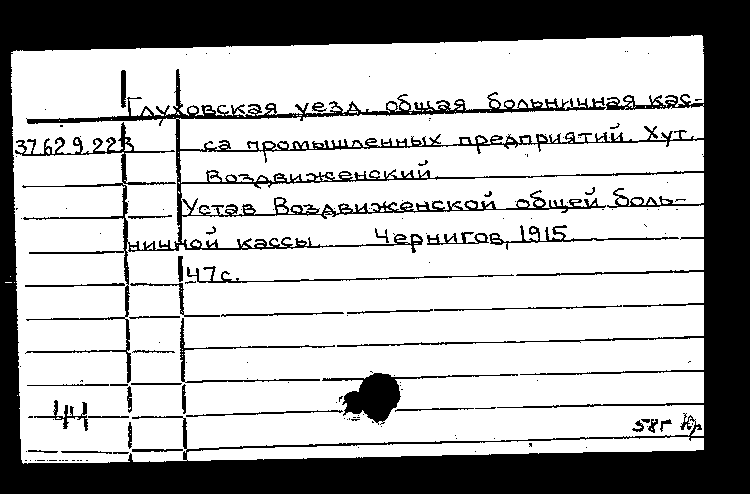 Глуховская уезд. общая больничная кас-
37.62.9.223 са промышленных предприятий. Хут.
Воздвиженский.
Устав Воздвиженской общей боль-
ничной кассы. Чернигов, 1915.
47 с.
58г